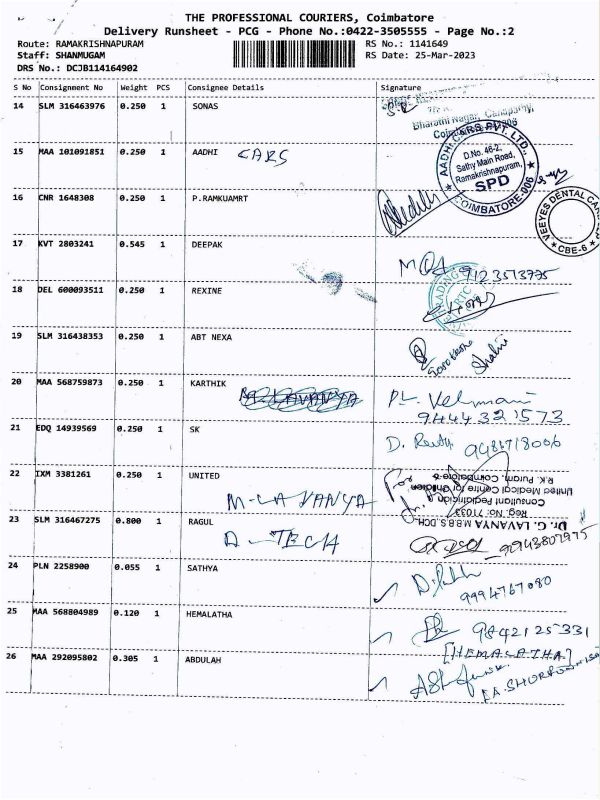 THE PROFESSIONAL COURIERS, Coimbatore
Delivery Runsheet - PCG - Phone No.:0422-3505555 - Page No.:2
Route: RAMAKRISHNAPURAM RS No.: 1141649
Staff: SHANMUGAM RS Date: 25-Mar-2023
DRS No.: DCJB114164902
S No Consignment No Weight PCS Consignee Details Signature
14 SLM 316463976 0.250 1 SONAS
Bharathi Nagar, Ganapathy,
15 MAA 101091851 0.250 1 AADHI CARS
AADHI CARS PVT. LTD.,
D.No. 46-2,
Sathy Main Road,
Ramakrishnapuram,
SPD
COIMBATORE-006
16 CNR 1648308 0.250 1 P.RAMKUAMRT
VEEYES DENTAL
CBE-6
17 KVT 2803241 0.545 1 DEEPAK
18 DEL 600093511 0.250 1 REXINE
19 SLM 316438353 0.250 1 ABT NEXA
Shalini
20 MAA 568759873 0.250 1 KARTHIK
9444321573
21 EDQ 14939569 0.250 1 SK
22 IXM 3381261 0.250 1 UNITED
M-LAVANYA
For
Dr. G. LAVANYA M.B.B.S.,DCH.,
Reg. No: 71033
Consultant Pediatrician
United Medical Centre for Children
R.K. Puram, Coimbatore-6
23 SLM 316467275 0.800 1 RAGUL
A-TECH
24 PLN 2258900 0.055 1 SATHYA
9994767080
25 MAA 568804989 0.120 1 HEMALATHA
9842125331
[HEMALATHA]
26 MAA 292095802 0.305 1 ABDULAH